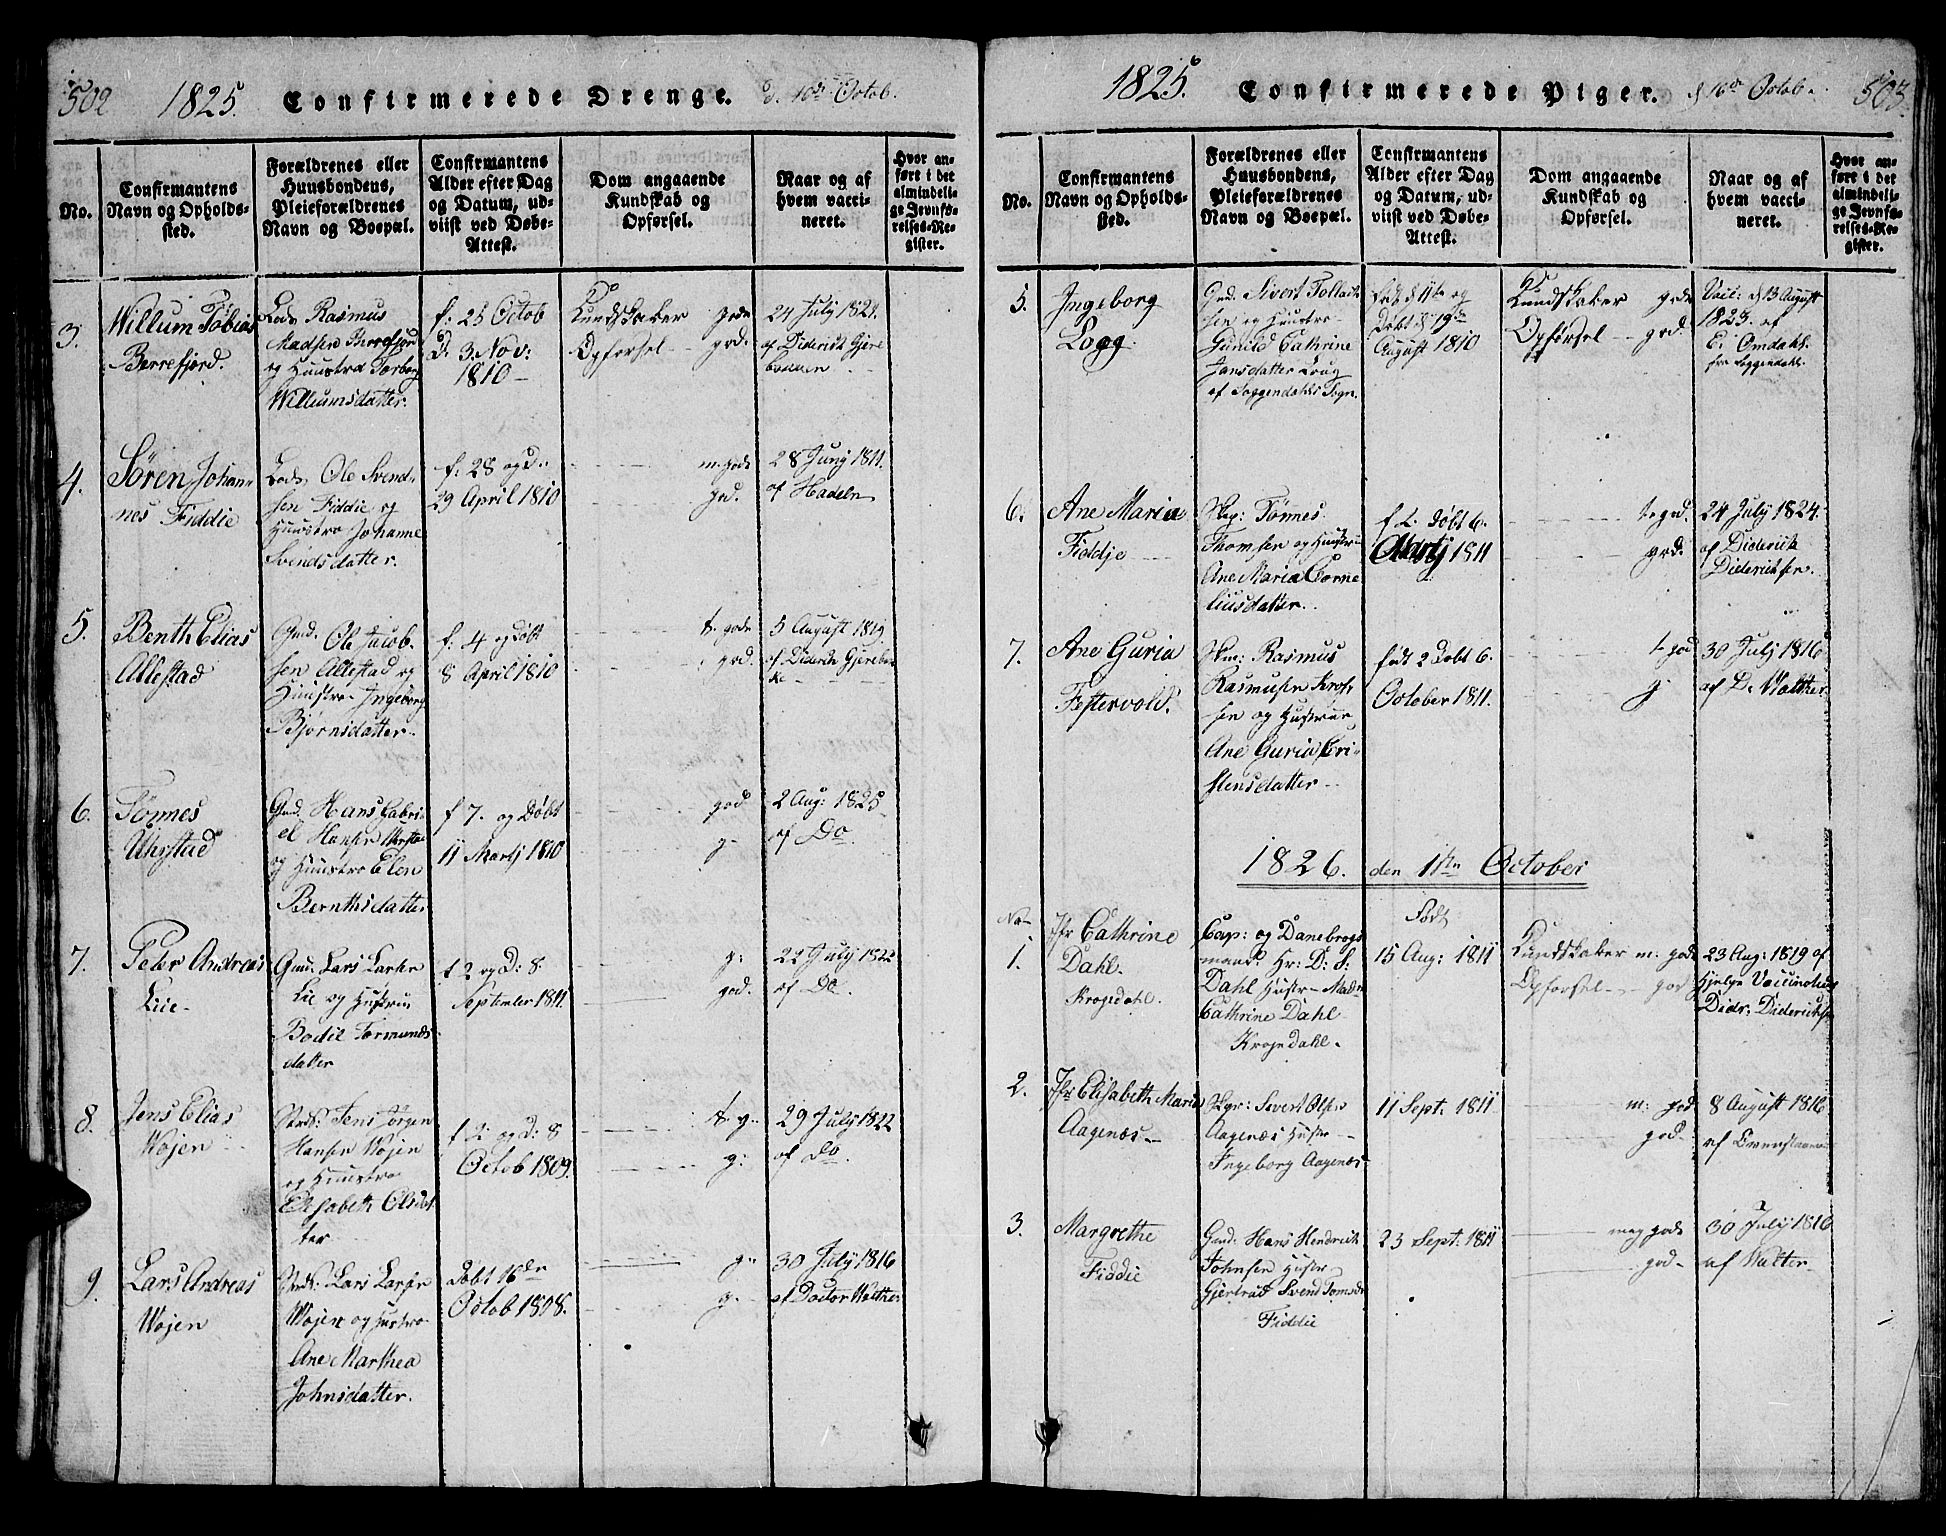 502 1825. Confirmerede Drenge. d. 16de Octob.
No.
Confirmantens
Navn og Opholds-
sted.
Forældrenes eller
Huusbondens,
Pleieforældrenes
Navn og Boepæl.
Confirmantens
Alder efter Dag
og Datum, ud-
viist ved Døbe-
Attest.
Dom angaaende
Kundskab og
Opførsel.
Naar og af
hvem vacci-
neret.
Hvor an-
ført i det
almindeli-
ge Jevnfø-
relses-Re-
gister.
3.
Willum Tobias
Berrefjord.
Rasmus
Madsen Berrefjord
og Huustroe Torborg
Willumsdatter.
f. 25 Octob
D. 3 Nov:
1810
Kundskaber gode
Opførsel god.
24 July 1824.
af Diderich Gjere
4.
Søren Johan-
nes Fiddie
Ole Svend-
sen Fiddie og
Huustroe Johanne
Svendsdatter.
f: 28 og D:
29 April 1810
m. gode
god.
28 Juny 1811.
af Hadeln
5.
Benth Elias
Allestad
Gmd. Ole Jacob-
sen Allestad og
Huustroe Ingeborg
Bjørnsdatter.
f: 4 og Døbt
8 April 1810
t. gode
god.
5 August 1819.
af Diderich Gjerebak-
ke
6.
Tønnes
Uhrstad
Gmd. Hans Gabri-
el Hansen Uhrstad
og Huustroe Elen
Bernthsdatter
f 7. og Døbt
11 Martj 1810
god
g.
2 Aug: 1825
af Do
7.
Peter Andreas
Liie
Gmd: Lars Larsen
Lie og Hustrue
Bodil Tormunds-
datter
f 2 og D: 8.
September 1811.
g:
god.
22 July 1822
af Do.
8.
Jens Elias
Wojen
Jens Jørgen
Hansen Wojen
og Huustroe
Elisabeth Olsdat-
ter
f 2: og D: 8
Octob 1809.
t. g.
g:
29 July 1822
af Do.
9.
Lars Andreas
Wojen
Lars Larsen
Wojen og Hustroe
Ane Marthea
Johnsdatter.
Døbt 16de
Octob 1808.
g.
g.
30 July 1816
af Doctor Walther
1825. Confirmerede Piger. d 16de Octob. 503.
No.
Confirmantens
Navn og Opholds-
sted.
Forældrenes eller
Huusbondens,
Pleieforældrenes
Navn og Boepæl.
Confirmantens
Alder efter Dag
og Datum, ud-
viist ved Døbe-
Attest.
Dom angaaende
Kundskab og
Opførsel.
Naar og af
hvem vacci-
neret.
Hvor an-
ført i det
almindeli-
ge Jevnfø-
relses-Re-
gister.
5.
Ingeborg
Logg.
Gmd. Sivert Tollach-
sen og Huustroe
Gunild Cathrine
Jansdatter Loug
af Soggendahls Sogn.
Fød d 11te og
Døbt d 19de
August 1810
Kundskaber gode
Opførsel god.
Vacc: d 13 August
1823. af
E. Omdahl.
fra Soggendahl.
6.
Ane Maria
Fiddje
Tønnes
Thomsen og Huustrue
Ane Maria Corne-
liusdatter.
f 2. døbt 6.
Martj 1811
t. god.
god.
24 July 1824.
af Diderich
Diderichsen.
7.
Ane Guria
Festervold.
Rasmus
Rasmusen
sen og Hustrue
Ane Guria Cri-
stensdatter
født 2 Døbt 6.
October 1811.
t. god
g.
30 July 1816
af D. Walther.
1826. den 1ste October
No
Født
1.
Jfr Cathrine
Dahl.
Krogedahl.
Cap: og Danebrogs
mand. Hr: D: S:
Dahl Hustr Madm
Cathrine Dahl
Krogedahl.
15 Aug: 1811
Kundskaber m: gode
Opførsel god
23 Aug: 1819 af
Hjelpe Vaccinateur
Didr: Diderichsen
2.
Jfr Elisabeth Maria
Aagenæs
Sivert Olsen
Aagenæs Hustr
Ingeborg Aagenæs
11 Sept: 1811
m: god
god
8 August 1816
af
3.
Margrethe
Fiddie
Gmd: Hans Hendrich
Johnsen Hustr
Gjertrud Svend Tomsdr
Fiddie
23 Sept: 1811
meg gode
god
30 July 1816
af Walter